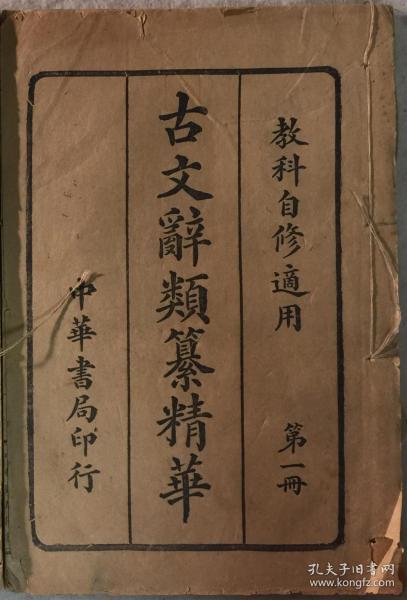 教科自修適用
第一冊
古文辭類纂精華
中華書局印行
孔夫子旧书网
www.kongfz.com